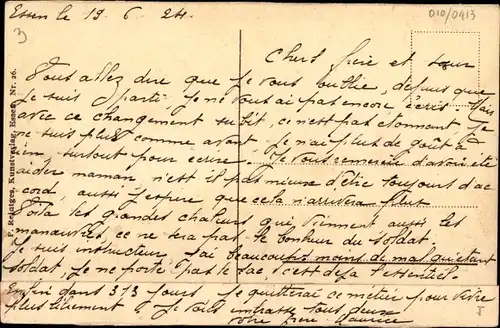 Essen le 19. 6 24.
010/0413
3
Chers frère et sœur
Vous allez dire que je vous oublie, depuis que
je suis parti je ne vous ai pas encore écris. Mais
avec ce changement subit, ce n'est pas étonnant, je
ne suis plus comme avant, je n'ai plus de goût à
rien, surtout pour écrire. Je vous remercie d'avoir été
aider maman, n'est il pas mieux d'être toujours d'ac
cord, aussi j'espère que cela n'arrivera plus
Voila les grandes chaleurs qui viennent aussi les
manœuvres, ce ne sera pas le bonheur du soldat.
Je suis instructeur, j'ai beaucoup moins de mal qu'étant
soldat, je ne porte pas le sac, c'est déja l'essentiel.
Enfin dans 373 jours je quitterai ce métier pour vivre
plus librement. Je vous embrasse tous deux
votre frère Maurice
P. Reintges, Kunstverlag, Essen. Nr. 26.